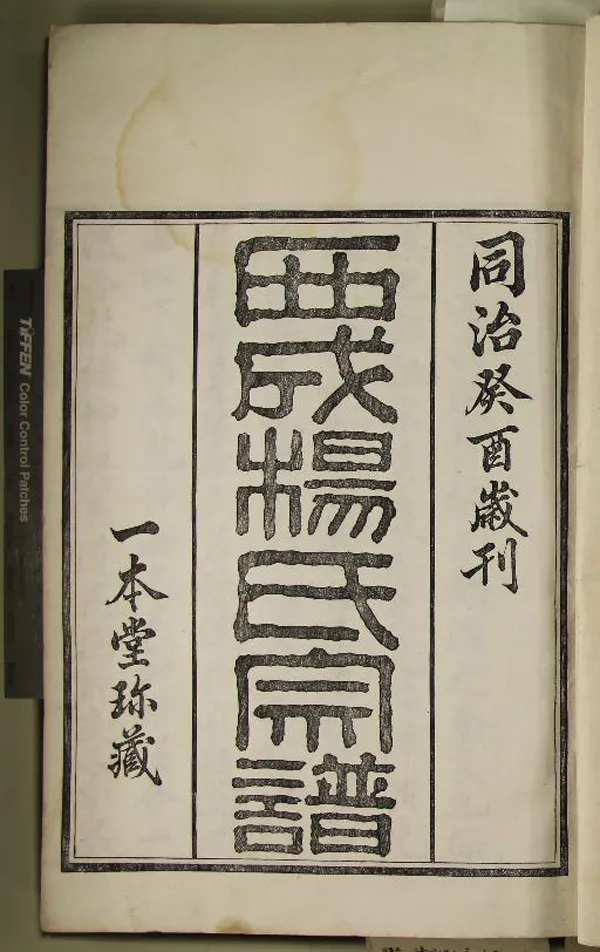 同治癸酉歲刊
西成楊氏宗譜
一本堂珎藏
TIFFEN Color Control Patches